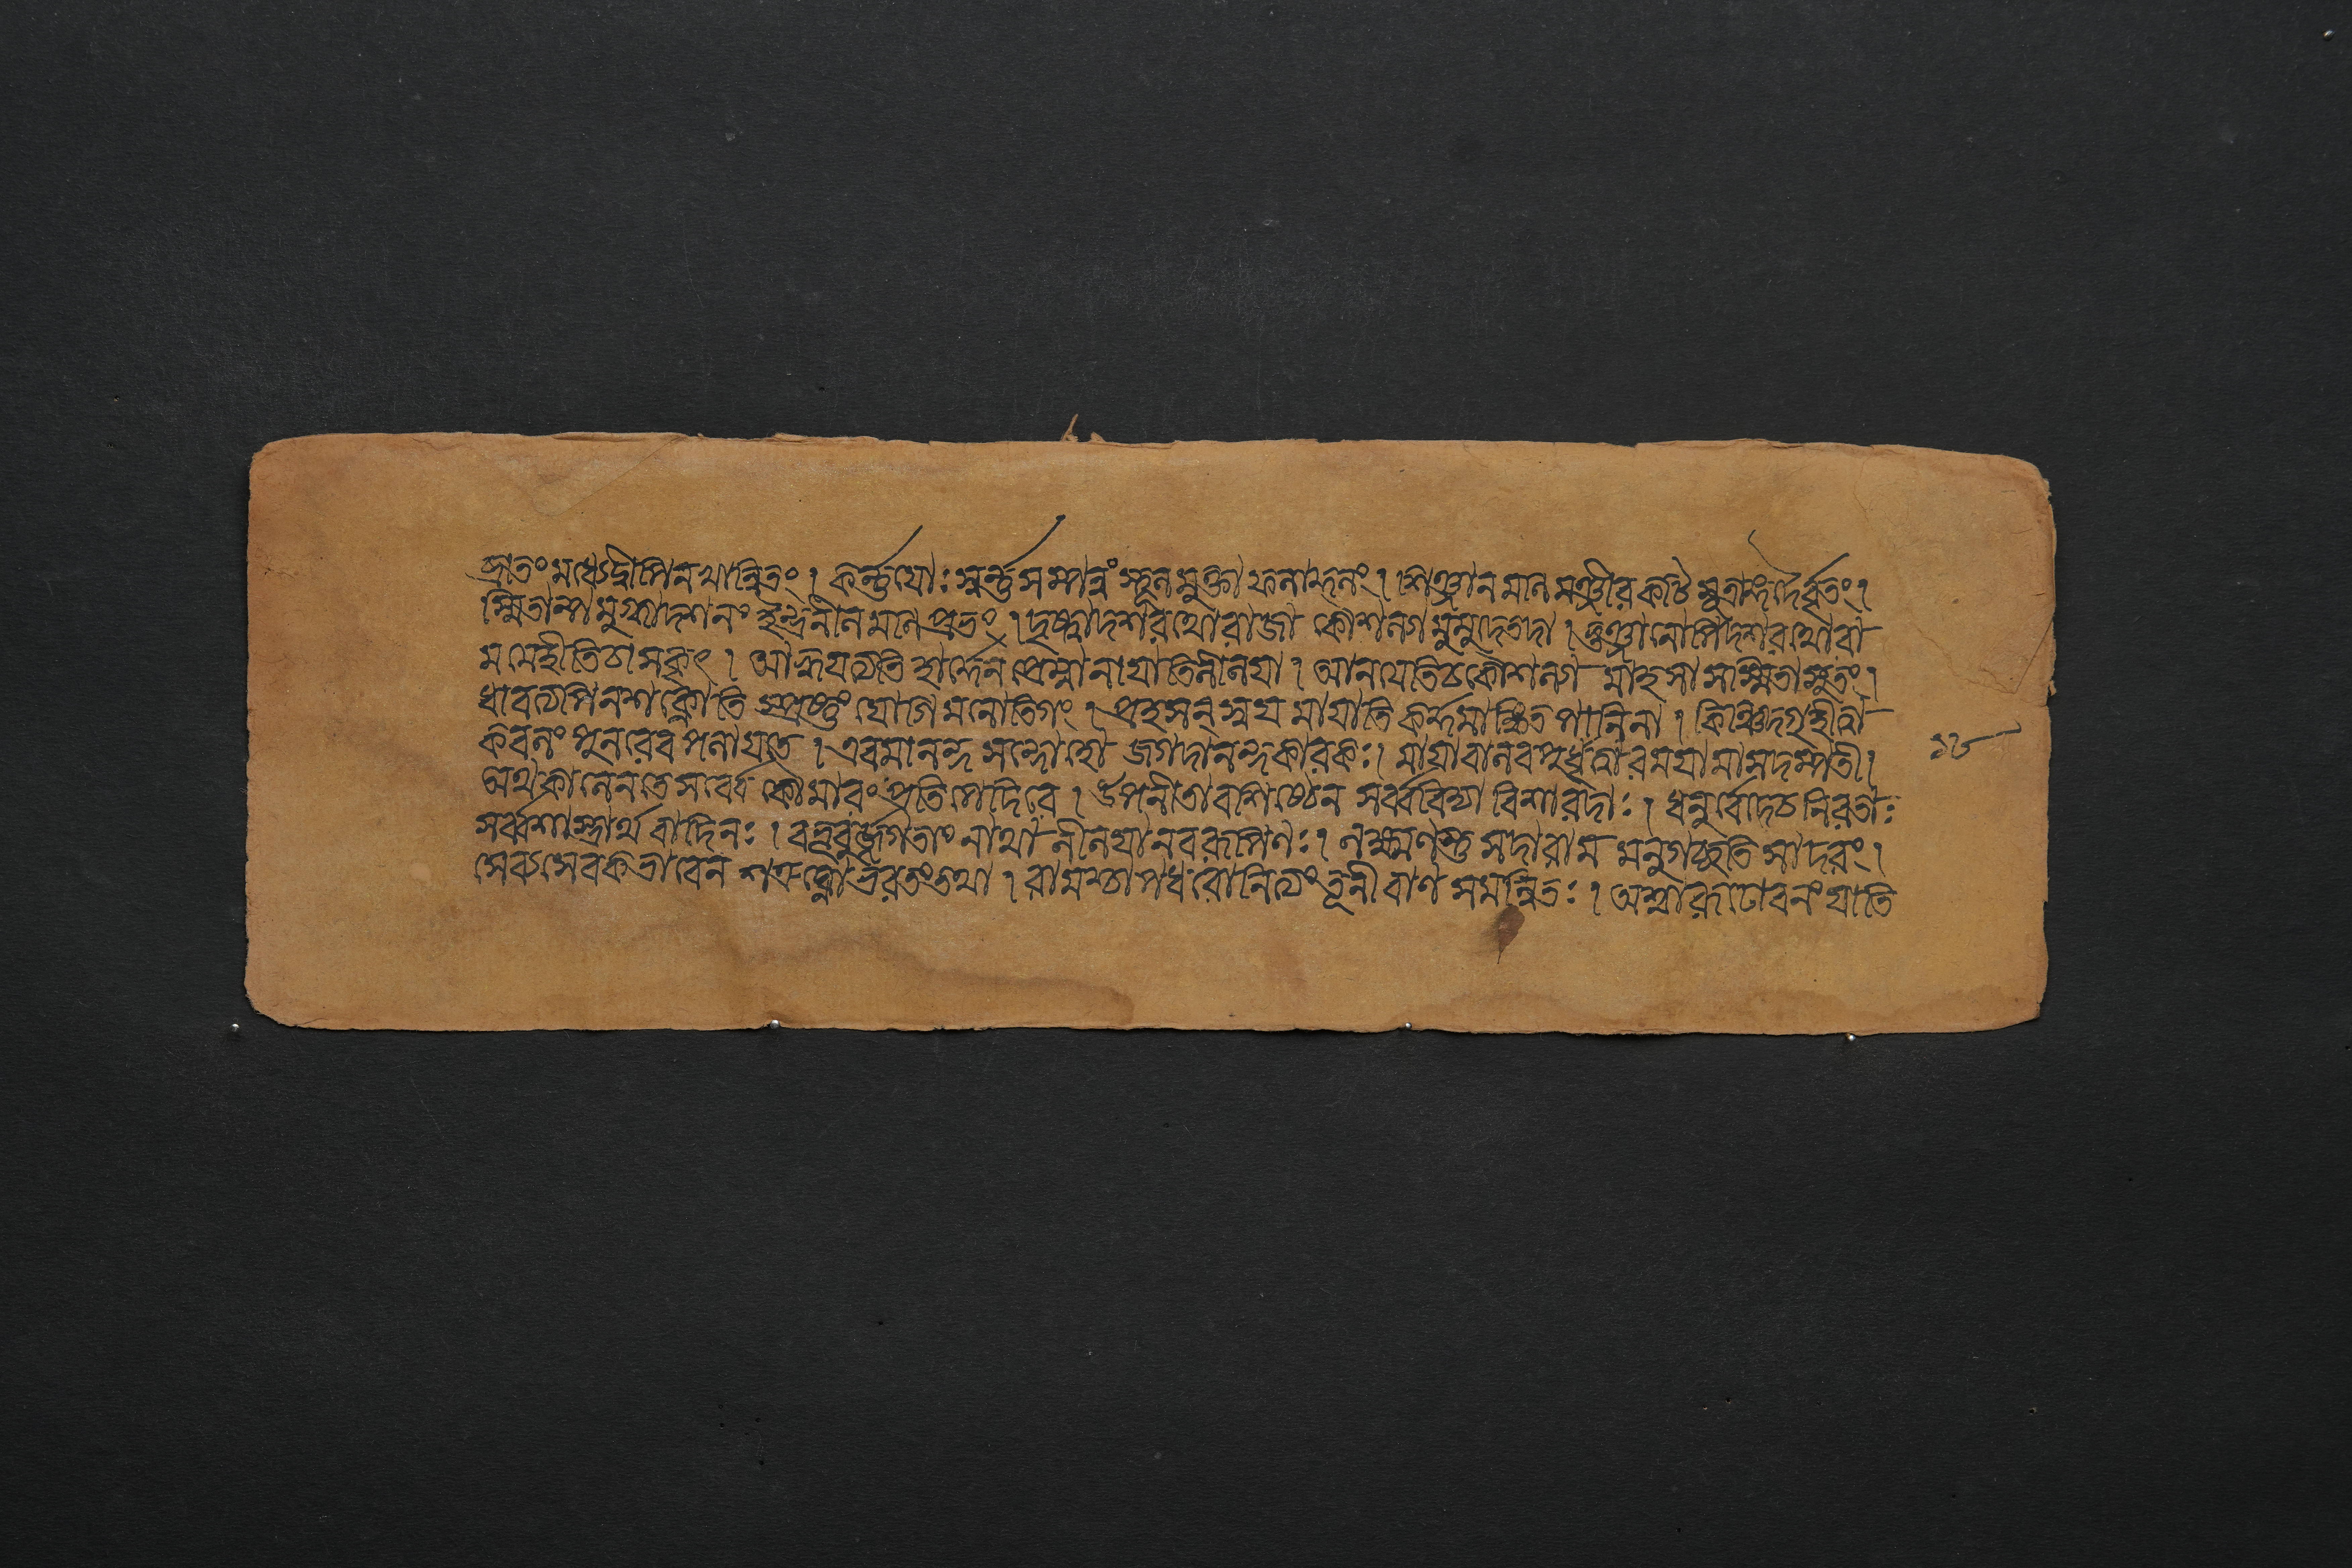 প্রাতং মধ্যেদ্বীপিনখান্বিতং । কর্ন্নযোঃ স্বর্ন্নসম্পন্নং স্থূনমুক্তাফনাঞ্চনং । শিঞ্জানমানমঞ্জীরকটিসূত্রাঙ্গদৈর্বৃতং ।
স্মিতান্যমুখাদশনং ইন্দ্রনীনমানপ্রভং । দৃষ্ট্বাদশরথোরাজা কৌশনগমুমুদেতদা । ভুঞ্জানোপিদশরথোরা
মমেহীতিচাসকৃৎ । আহ্বযত্যতিহর্ষেন প্রেম্নানাযাতিনীনযা । আনযেতিচকৌশনগ মাহসা সস্মিতাসুতং ।
ধাবত্যপিনশক্নোতি স্প্রষ্টুং যোগিমনোতিগং । প্রহসন্স্বযমাযাতি কর্দ্দমাঙ্কিতপানিনা । কিঞ্চিদ্গৃহীত্বা
কবনং পুনরেবপনাযতে । এবমানন্দসন্দোহো জগদানন্দকারকঃ । মাযাবানবপুর্ধৃত্বারমযামাসদম্পতী ।
অথকানেনতেসর্ব্বে কৌমারং প্রতিপেদিরে । উপনীতাবশিষ্ঠেন সর্ব্ববিদ্যাবিশারদাঃ । ধনুর্ব্বেদেচনিরতাঃ
সর্ব্বশাস্ত্রার্থবাদিনঃ । বভূবুর্জ্জগতাং নাথা নীনযানবরূপিণঃ । নক্ষ্মণস্তুসদারামমনুগচ্ছতিসাদরং ।
সেব্যসেবকভাবেন শত্রুঘ্নোভরতংতথা । রামশ্চাপধরোনিত্যং তূনীবাণসমন্বিতঃ । অশ্বারূঢোবনংযাতি
১৬